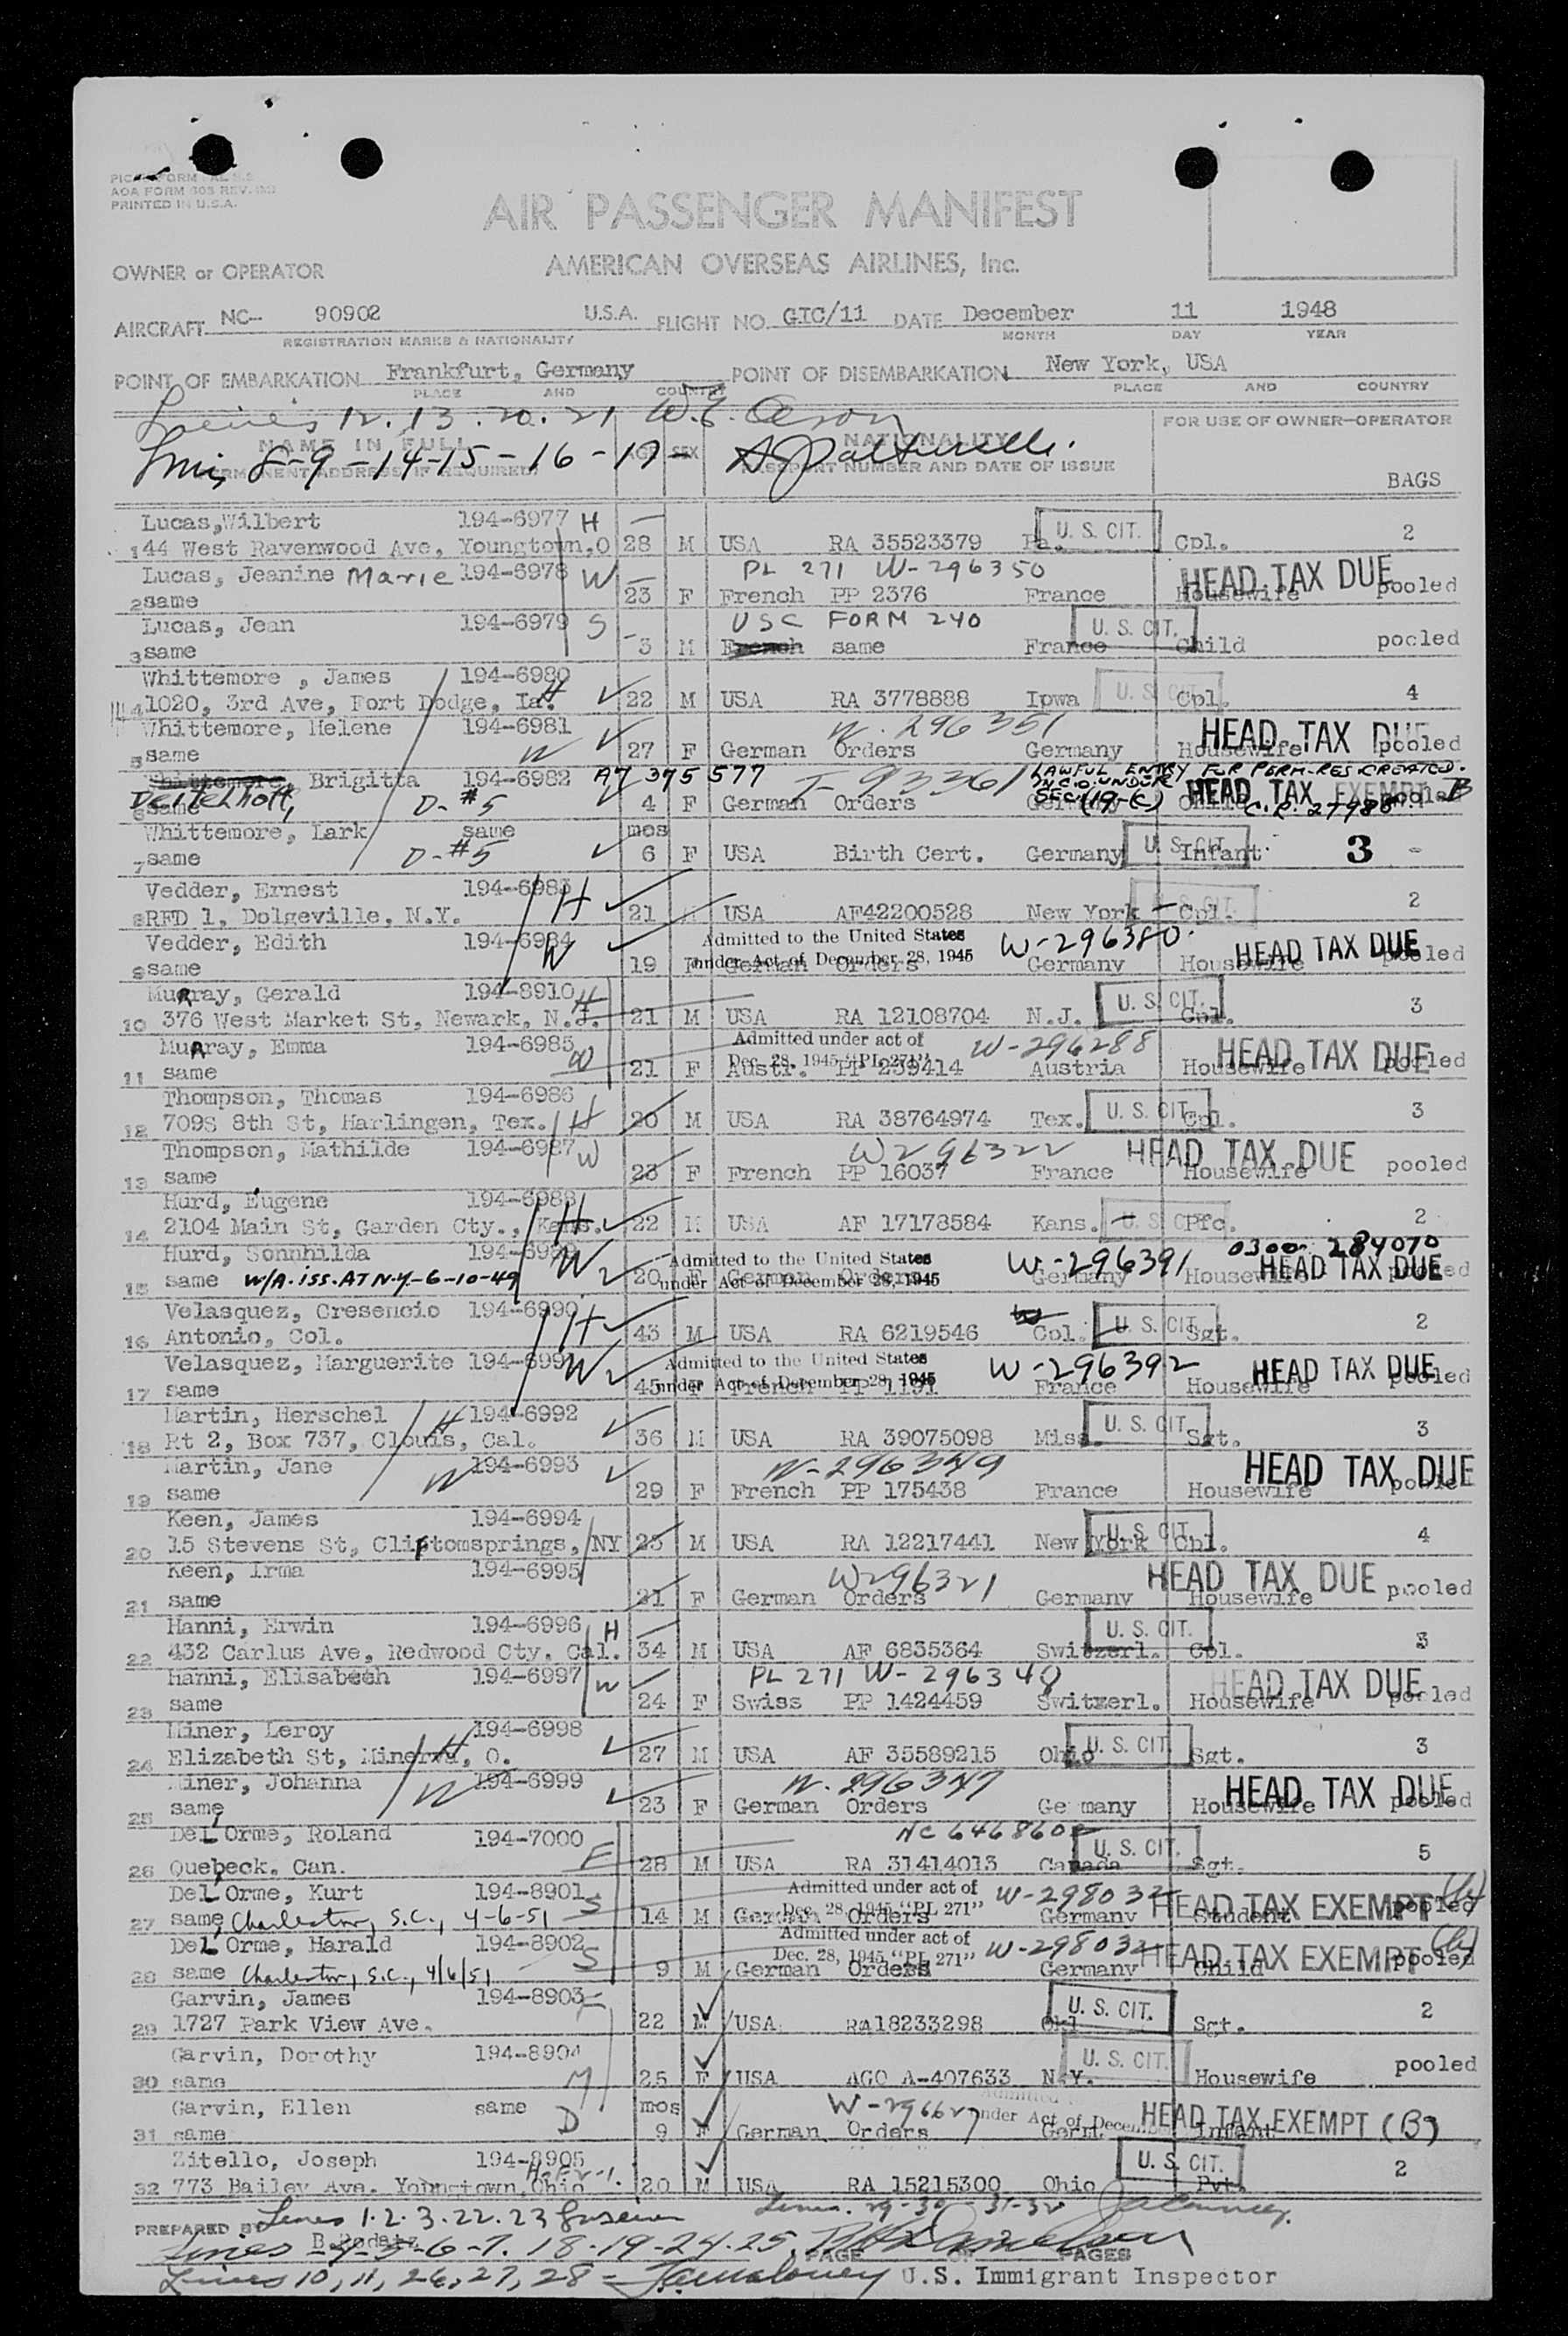 AOA FORM 603 REV.
PRINTED IN U.S.A.
AIR PASSENGER MANIFEST
OWNER or OPERATOR AMERICAN OVERSEAS AIRLINES, Inc.
AIRCRAFT NC- 90902 U.S.A. FLIGHT NO. GIC/11 DATE December 11 1948
REGISTRATION MARKS & NATIONALITY MONTH DAY YEAR
POINT OF EMBARKATION Frankfurt, Germany POINT OF DISEMBARKATION New York, USA
PLACE AND COUNTRY PLACE AND COUNTRY
12. 13. 20. 21 W.E.
NAME IN FULL AGE SEX NATIONALITY FOR USE OF OWNER-OPERATOR
8-9-14-15-16-17-
PERMANENT ADDRESS (IF REQUIRED) PASSPORT NUMBER AND DATE OF ISSUE
BAGS
Lucas, Wilbert 194-6977 H U. S. CIT.
1 44 West Ravenwood Ave, Youngtown,O 28 M USA RA 35523379 Pa. Cpl. 2
Lucas, Jeanine Marie 194-6978 W PL 271 W-296350 HEAD TAX DUE
2 same 23 F French PP 2376 France Housewife pooled
Lucas, Jean 194-6979 S USC FORM 240 U. S. CIT.
3 same 3 M French same France Child pooled
Whittemore , James 194-6980
4 1020, 3rd Ave, Fort Dodge, Ia. H 22 M USA RA 3778888 Iowa U. S. CIT. Cpl. 4
Whittemore, Helene 194-6981 W. 296351 HEAD TAX DUE
5 same W 27 F German Orders Germany Housewife pooled
Whittemore, Brigitta 194-6982 A7 375 577 T-93361 LAWFUL ENTRY FOR PERM-RES CREATED.
6 same D-#5 4 F German Orders Germany SEC. (19-C) Child HEAD TAX EXEMPT C.R. 27988 pooled B
Whittemore, Lark same mos U. S. CIT.
7 same D-#5 6 F USA Birth Cert. Germany Infant 3 -
Vedder, Ernest 194-6983 H
8 RFD 1, Dolgeville, N.Y. 21 M USA AF42200528 New York U. S. CIT. Cpl. 2
Vedder, Edith 194-6984 W Admitted to the United States under Act of December 28, 1945 W-296380. HEAD TAX DUE
9 same 19 F German Orders Germany Housewife pooled
Murray, Gerald 194-8910 H U. S. CIT.
10 376 West Market St, Newark, N.J. 21 M USA RA 12108704 N.J. Cpl. 3
Murray, Emma 194-6985 W Admitted under act of Dec. 28, 1945 "PL 271" W-296288 HEAD TAX DUE
11 same 21 F Austr. PP 239414 Austria Housewife pooled
Thompson, Thomas 194-6986 U. S. CIT.
12 709S 8th St, Harlingen, Tex. H 20 M USA RA 38764974 Tex. Cpl. 3
Thompson, Mathilde 194-6987 W W296322 HEAD TAX DUE
13 same 23 F French PP 16037 France Housewife pooled
Hurd, Eugene 194-6988
14 2104 Main St, Garden Cty., Kans. H 22 M USA AF 17178584 Kans. U. S. CIT. Pfc. 2
Hurd, Sonnhilda 194-6989 W Admitted to the United States under Act of December 28, 1945 W-296391 0300 284070 HEAD TAX DUE
15 same W/A. ISS. AT N.Y-6-10-49 20 F German Orders Germany Housewife pooled
Velasquez, Cresencio 194-6990 H
16 Antonio, Col. 43 M USA RA 6219546 Col. U. S. CIT. Sgt. 2
Velasquez, Marguerite 194-6991 W Admitted to the United States under Act of December 28, 1945 W-296392 HEAD TAX DUE
17 same 45 F French PP 1191 France Housewife pooled
Martin, Herschel H 194-6992 U. S. CIT.
18 Rt 2, Box 737, Clouis, Cal. 36 M USA RA 39075098 Miss. Sgt. 3
Martin, Jane W 194-6993 W-296349 HEAD TAX DUE
19 same 29 F French PP 175438 France Housewife pooled
Keen, James 194-6994 U. S. CIT.
20 15 Stevens St, Cliftomsprings, NY 23 M USA RA 12217441 New York Cpl. 4
Keen, Irma 194-6995 W296321 HEAD TAX DUE
21 same 21 F German Orders Germany Housewife pooled
Hanni, Erwin 194-6996 H U. S. CIT.
22 432 Carlus Ave, Redwood Cty. Cal. 34 M USA AF 6835364 Switzerl. Cpl. 3
Hanni, Elisabeth 194-6997 W PL 271 W-296340 HEAD TAX DUE
23 same 24 F Swiss PP 1424459 Switzerl. Housewife pooled
Miner, Leroy 194-6998 H U. S. CIT.
24 Elizabeth St, Minerva, O. 27 M USA AF 35589215 Ohio Sgt. 3
Miner, Johanna W 194-6999 W. 296347 HEAD TAX DUE
25 same 23 F German Orders Germany Housewife pooled
DeL'Orme, Roland 194-7000 U. S. CIT.
26 Quebeck, Can. F 28 M USA RA 31414013 Canada Sgt. 5
DeL'Orme, Kurt 194-8901 S Admitted under act of Dec. 28, 1945 "PL 271" W-298032 HEAD TAX EXEMPT
27 same, Charleston, S.C., 4-6-51 14 M German Orders Germany Student pooled
DeL'Orme, Harald 194-8902 S Admitted under act of Dec. 28, 1945 "PL 271" W-298032 HEAD TAX EXEMPT
28 same Charleston, S.C., 4/6/51 9 M German Orders Germany Child pooled
Garvin, James 194-8903 U. S. CIT.
29 1727 Park View Ave. 22 M USA RA18233298 Okl. Sgt. 2
Garvin, Dorothy 194-8904 U. S. CIT.
30 same M 25 F USA AGO A-407633 N.Y. Housewife pooled
Garvin, Ellen same D mos W-296627 Admitted under Act of December HEAD TAX EXEMPT (B)
31 same 9 F German Orders Germ. Infant
Zitello, Joseph 194-8905 U. S. CIT.
32 773 Bailey Ave. Youngtown, Ohio 20 M USA RA 15215300 Ohio Pvt. 2
PREPARED BY Lines 1.2.3.22.23 Lines. 29-30-31-32
Lines -4-5-6-7. 18-19-24-25. PAGE OF PAGES
Lines 10, 11, 26, 27, 28 - U.S. Immigrant Inspector